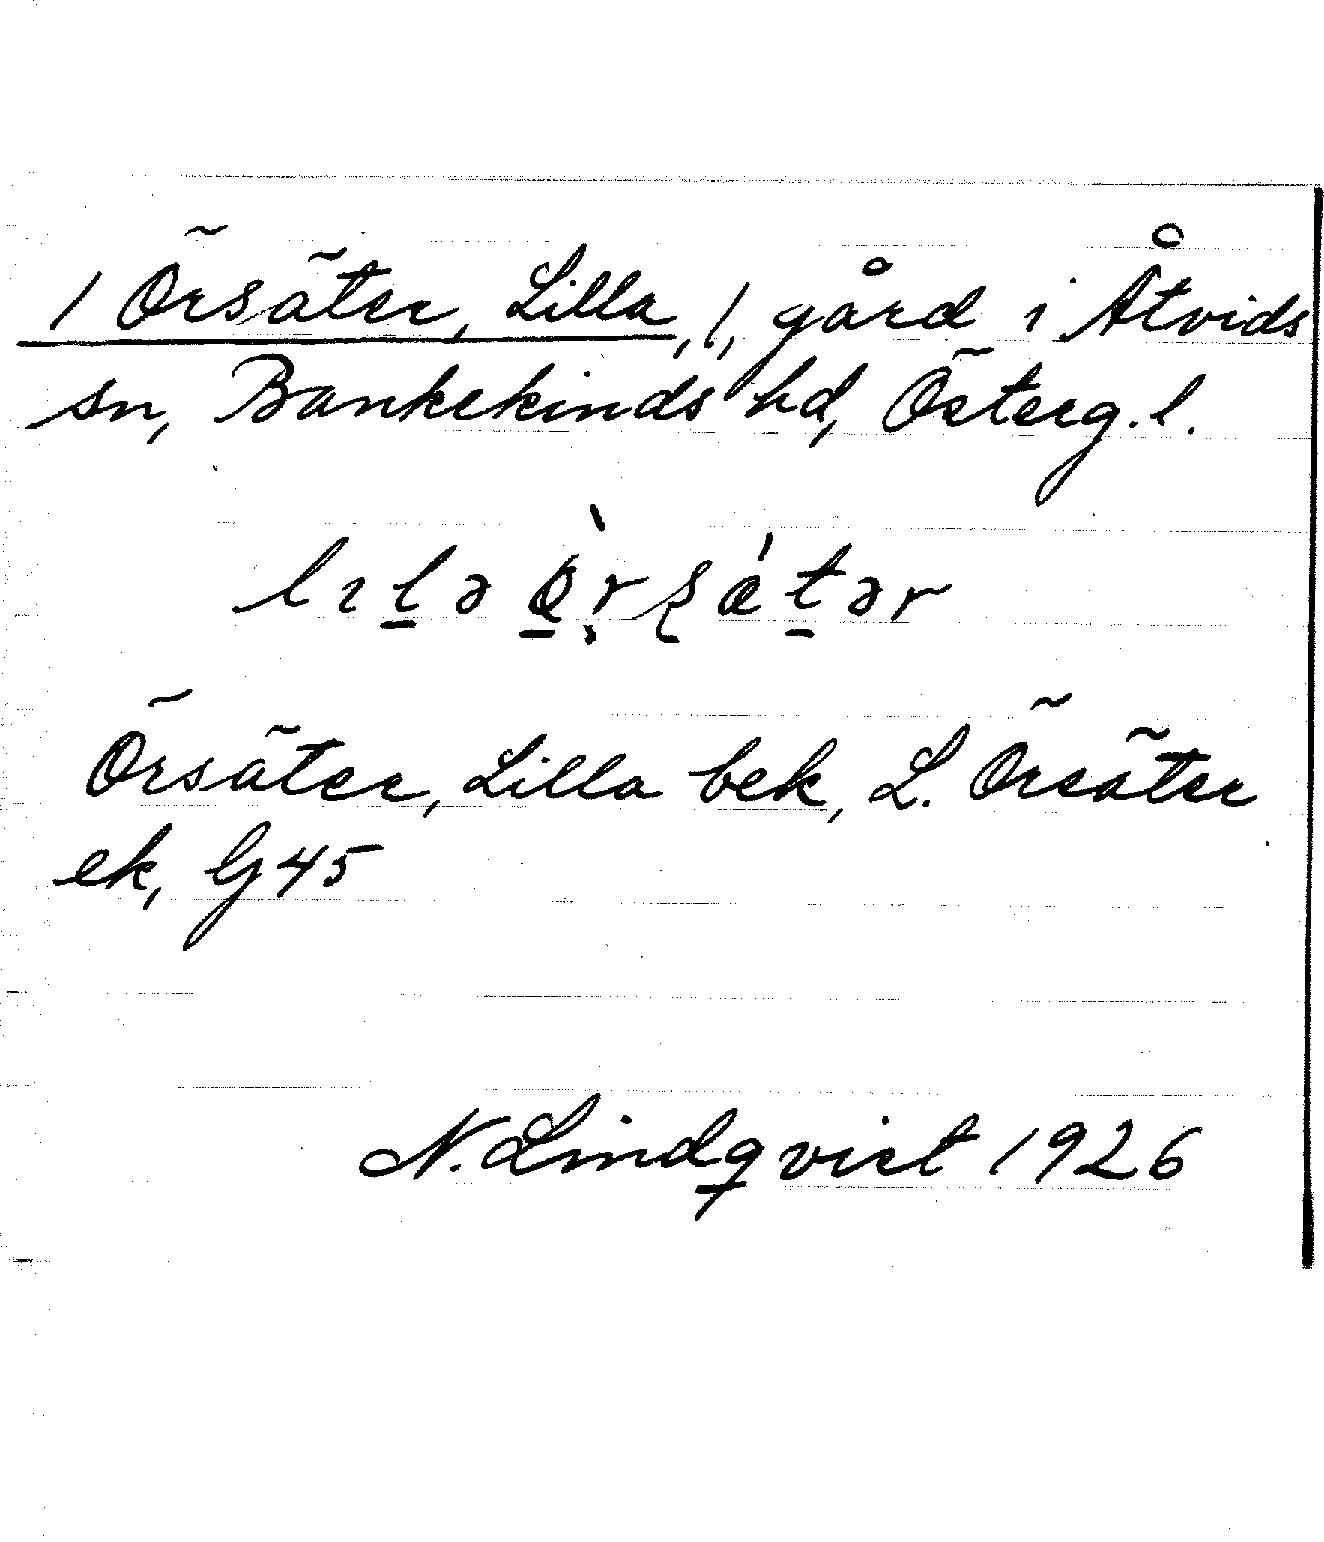 / Örsäter, Lilla, /, gård i Åtvids
sn, Bankekinds hd, Österg.l.
Örsäter, Lilla bek, L. Örsäter
ek, G 45
N. Lindqvist 1926